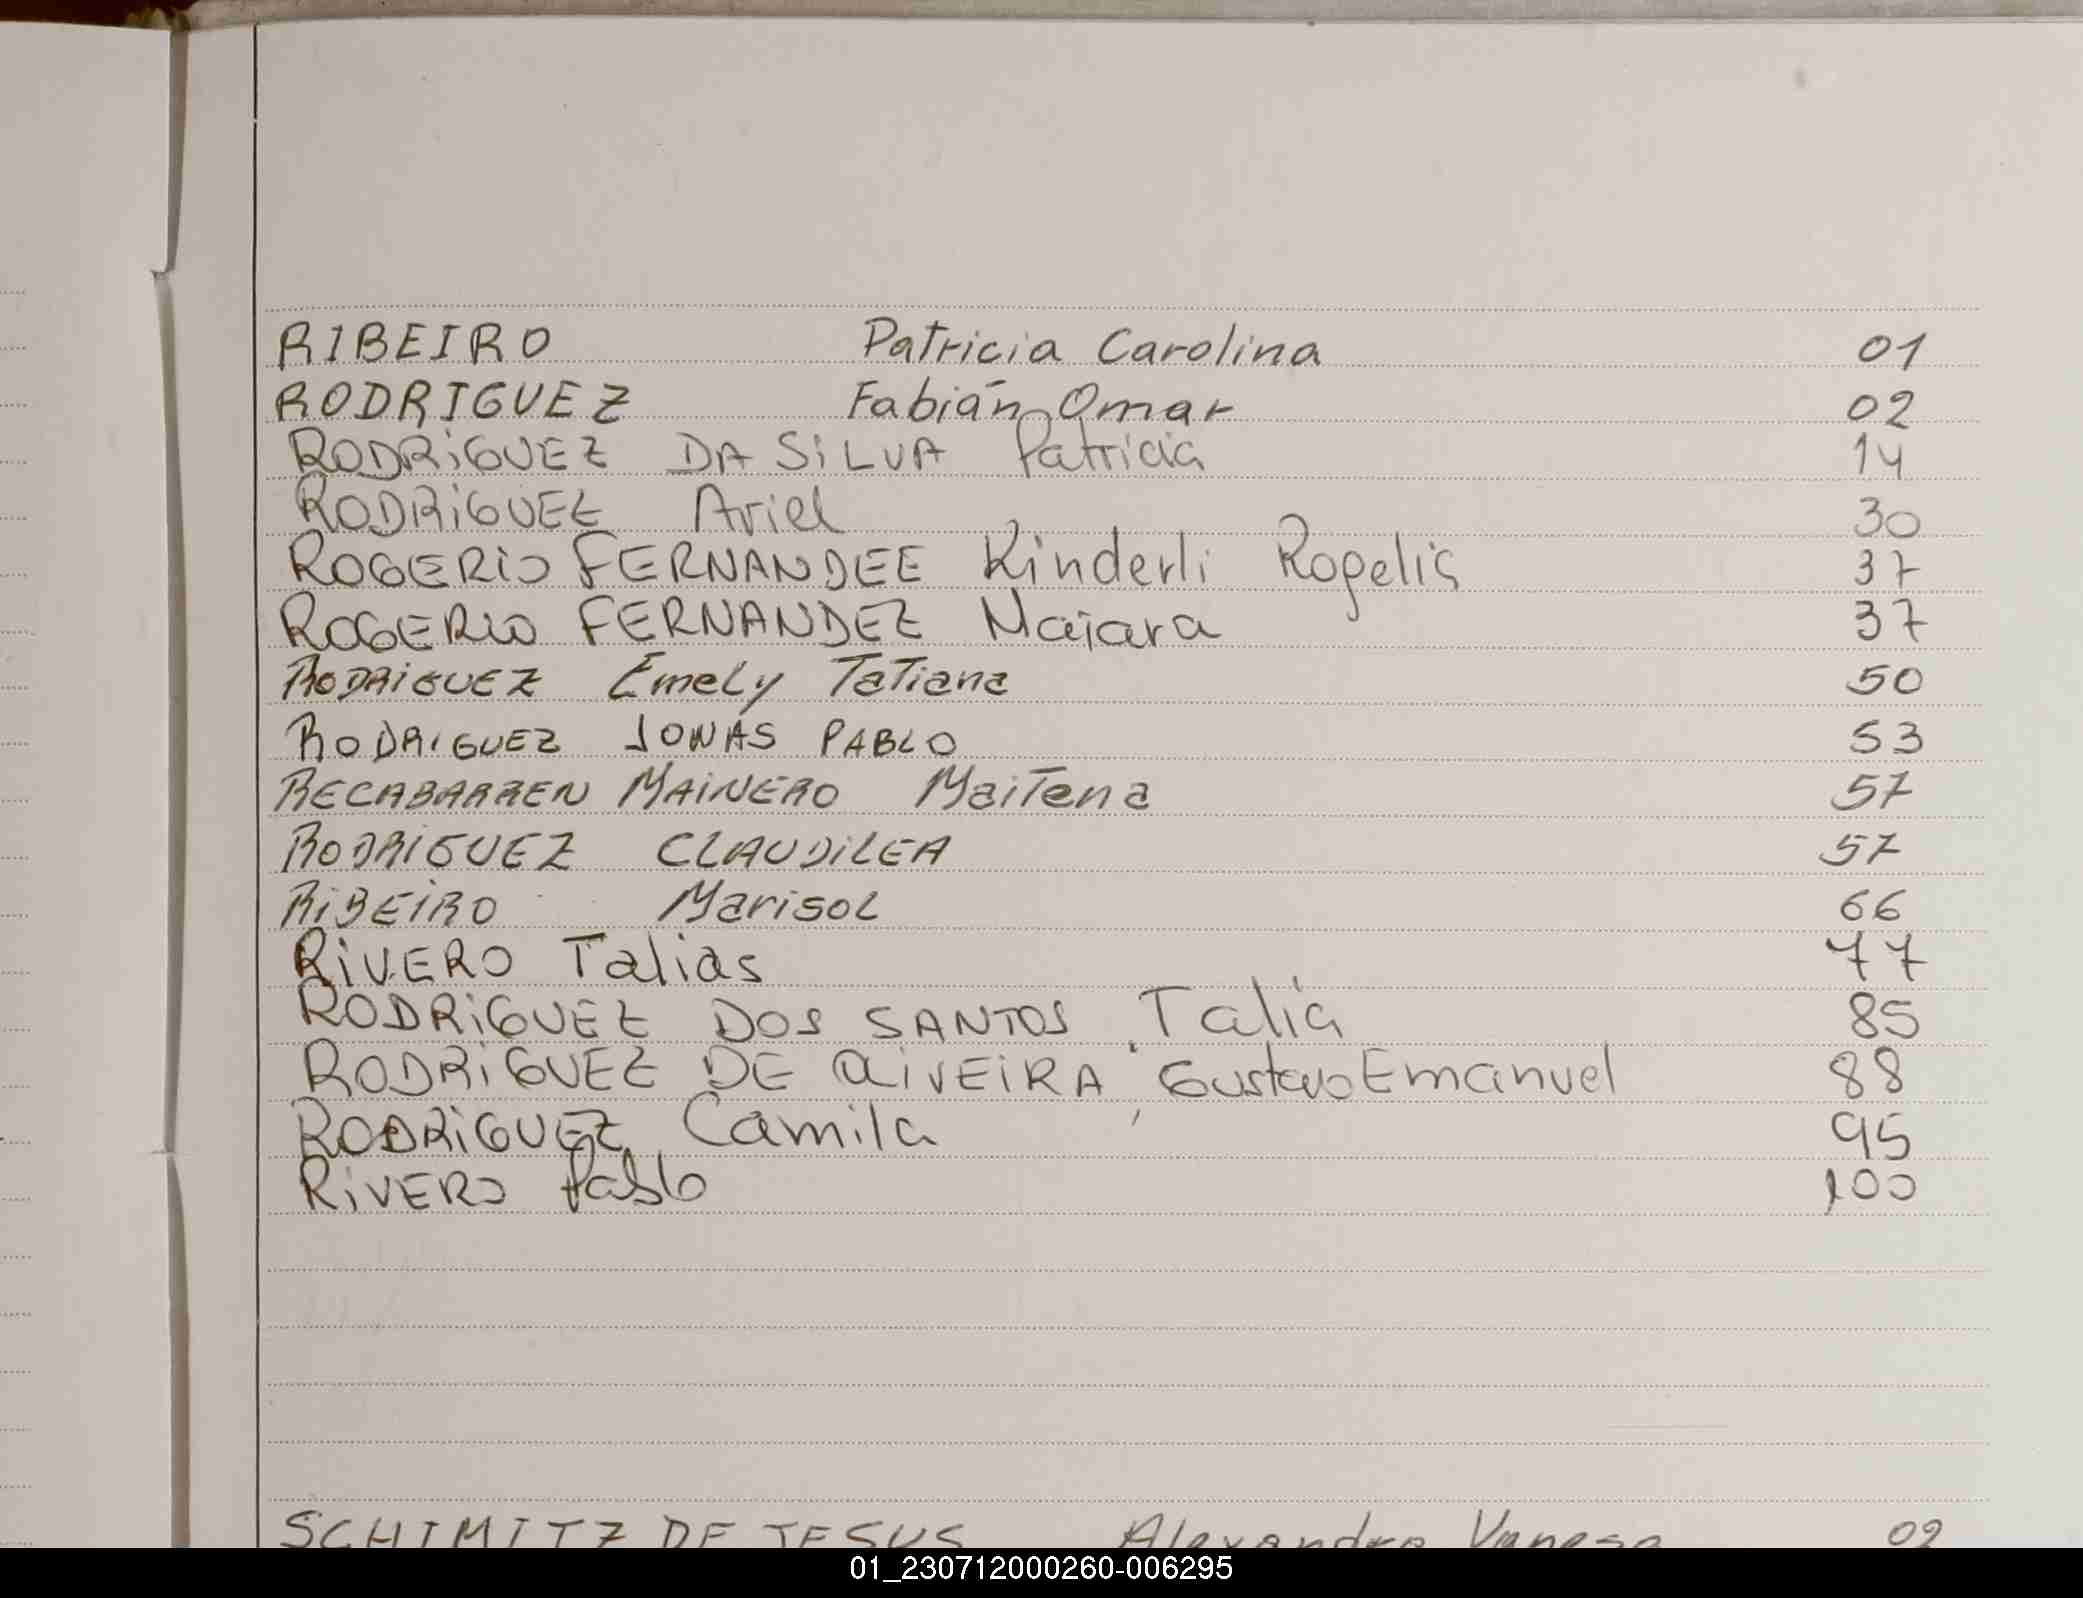 RIBEIRO Patricia Carolina 01
RODRIGUEZ Fabián Omar 02
RODRiGUEZ DA SiLVA Patricia 14
RODRiGUEZ Ariel 30
ROGERiO FERNANDEZ Kinderli Rogelis 37
ROGERIO FERNANDEZ Maiara 37
RODRiGUEZ EmeLy TaTiana 50
RODRIGUEZ JONÁS PABLO 53
RECABARREN MAiNERO MaiTena 57
RODRiGUEZ CLAUDiLEA 57
RiBEiRO MarisoL 66
RiVERO Talias 77
RODRiGUEZ DOS SANTOS, Talia 85
RODRiGUEZ DE OLiVEiRA, Gustavo Emanuel 88
RODRiGUEZ Camila 95
RiVERO Pablo 100
SCHIMITZ DE JESUS Alexandra Vanesa 02
01_230712000260-006295